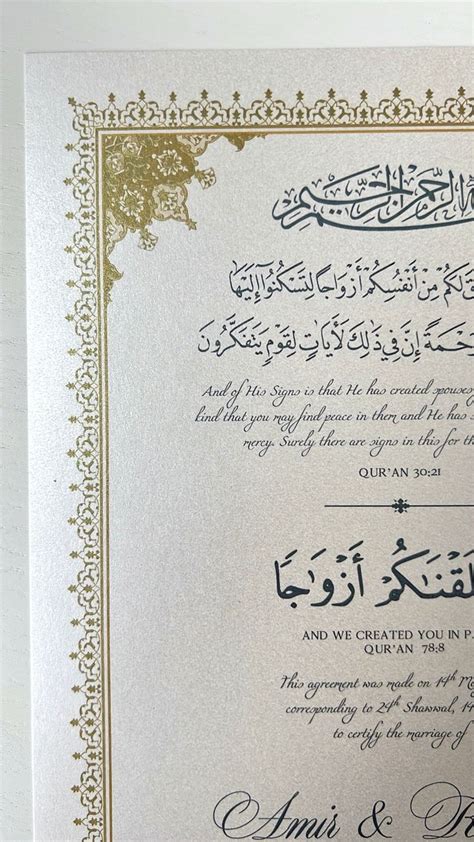 الرحمن الرحيم
لَكُم مِّنْ أَنفُسِكُمْ أَزْوَاجًا لِّتَسْكُنُوا إِلَيْهَا
إِنَّ فِي ذَٰلِكَ لَآيَاتٍ لِّقَوْمٍ يَتَفَكَّرُونَ
And of His Signs is that He has created spouses
kind that you may find peace in them and He has
mercy. Surely there are signs in this for
QUR'AN 30:21
أَزْوَاجًا
AND WE CREATED YOU IN
QUR'AN 78:8
This agreement was made on 14th
corresponding to 24th Shawwal,
to certify the marriage of
Amir &